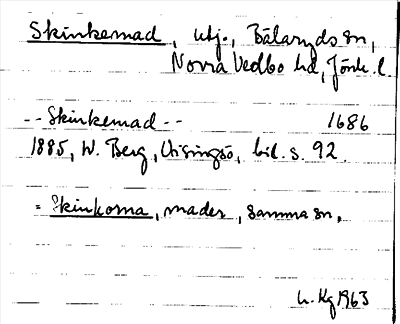 Skinkemad, utj., Bälaryds sn,
Norra Vedbo hd, Jönk. l.
-- Skinkemad -- 1686
1885, W. Berg, Visingsö, bil. s. 92.
= Skinkorna, mader, samma sn.
L. Kg 1963